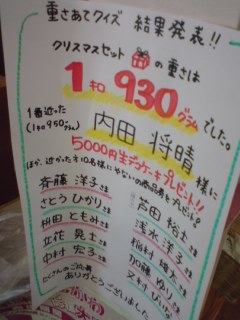 重さあてクイズ 結果発表!!
クリスマスセット の重さは
1キロ 930グラムでした。
1番近った
(1キロ950グラム)
内田 将晴 様に
5000円生デコケーキプレゼント!!
ほか、近かった方10名様に の商品券をプレゼント。
斉藤 洋子さま
さとう ひかりさま
枡田 ともみさま
立花 晃士さま
中村 宏子さま
芦田 裕士さま
浅水 洋子さま
稲村 さま
加藤 ゆりさま
たくさんのご応募
ありがとうございました